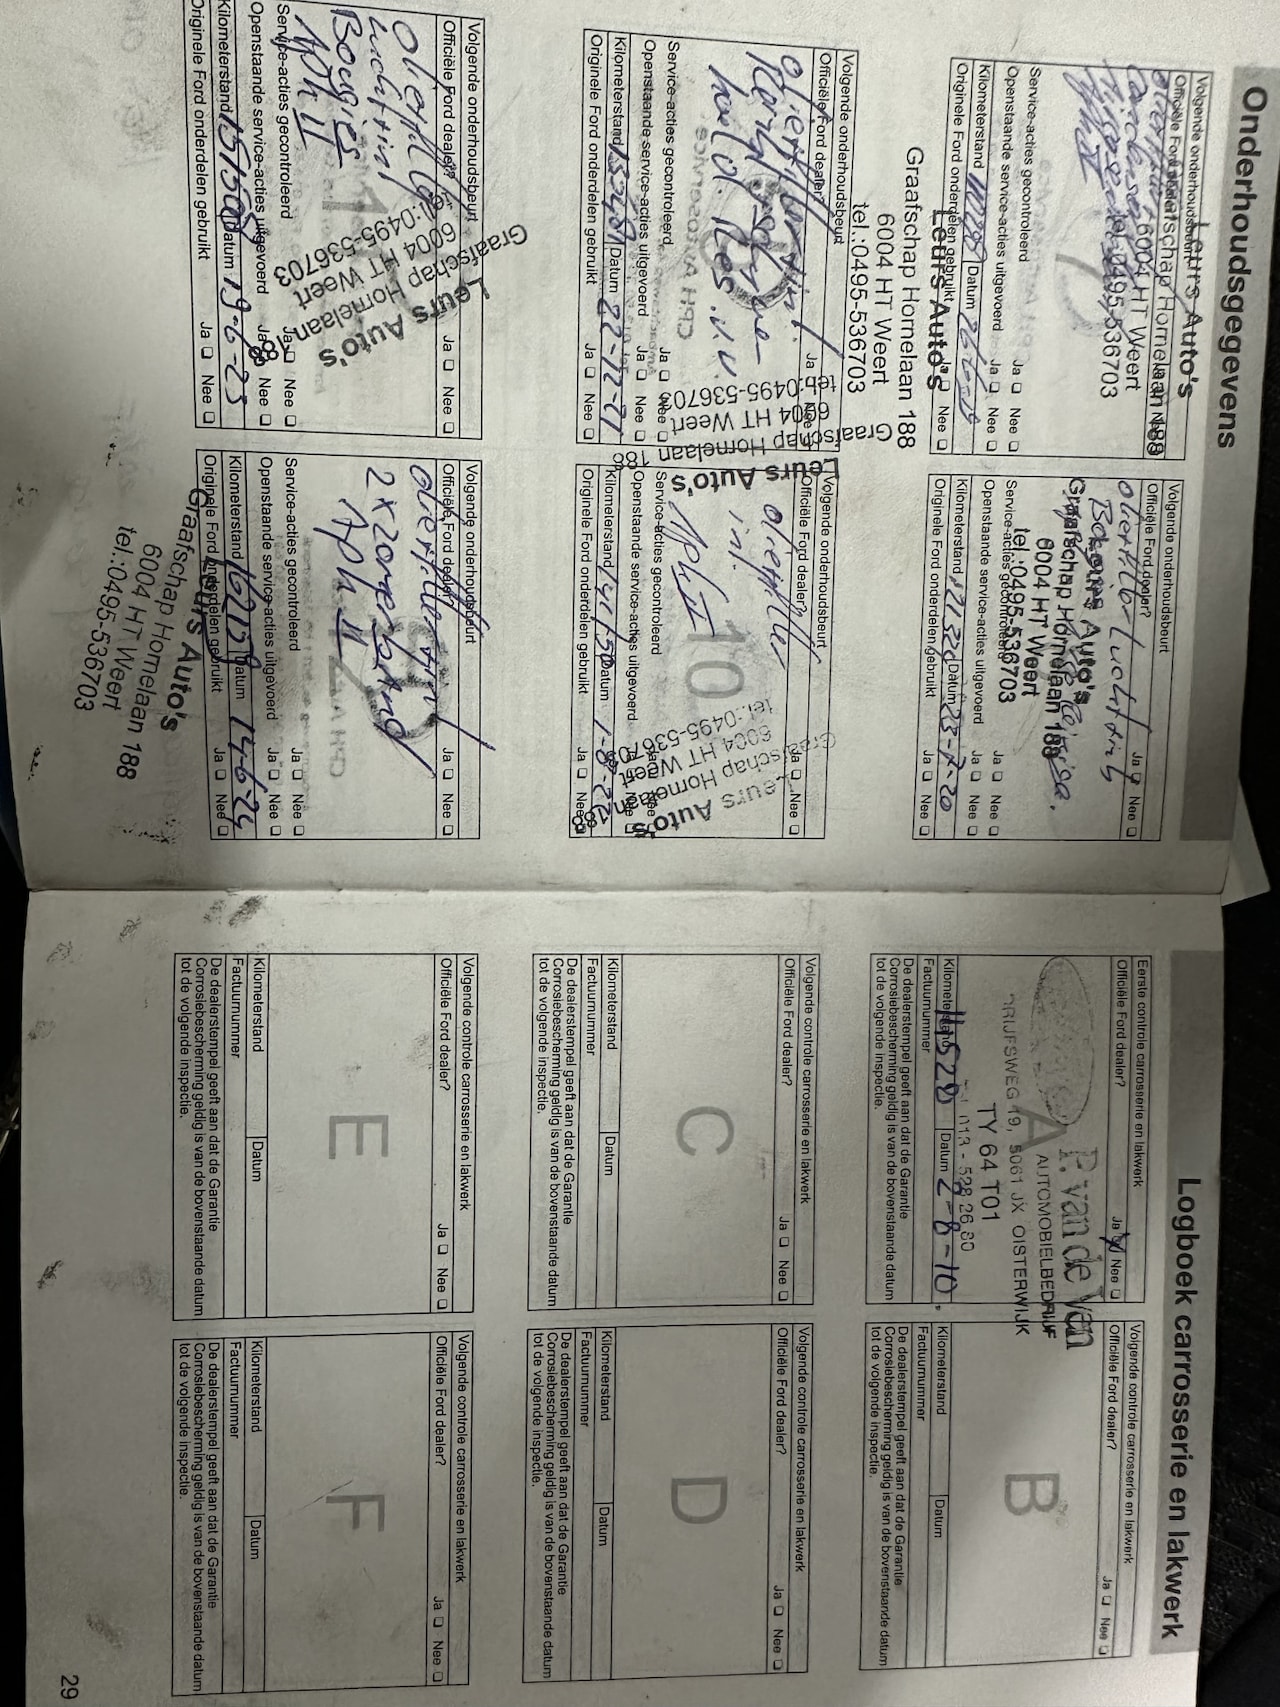 Onderhoudsgegevens
Volgende onderhoudsbeurt
Officiële Ford
Leurs Auto's
Graafschap Hornelaan 188
6004 HT Weert
tel.:0495-536703
Service-acties gecontroleerd
Ja ❏ Nee ❏
Openstaande service-acties uitgevoerd
Ja ❏ Nee ❏
Kilometerstand
Datum
Originele Ford onderdelen gebruikt
Ja ❏ Nee ❏
Leurs Auto's
Graafschap Hornelaan 188
6004 HT Weert
tel.:0495-536703
Volgende onderhoudsbeurt
Officiële Ford dealer?
Ja ❏ Nee ❏
oliefilter Luchtfilt
Auto's
Graafschap Hornelaan 188
6004 HT Weert
tel.:0495-536703
Service-acties gecontroleerd
Ja ❏ Nee ❏
Openstaande service-acties uitgevoerd
Ja ❏ Nee ❏
Kilometerstand
Datum 23-7-20
Originele Ford onderdelen gebruikt
Ja ❏ Nee ❏
Volgende onderhoudsbeurt
Officiële Ford dealer?
Service-acties gecontroleerd
Ja ❏ Nee ❏
Openstaande service-acties uitgevoerd
Ja ❏ Nee ❏
Kilometerstand
Datum 22-12-21
Originele Ford onderdelen gebruikt
Ja ❏ Nee ❏
Leurs Auto's
Graafschap Hornelaan 188
6004 HT Weert
tel.:0495-536703
Volgende onderhoudsbeurt
Officiële Ford dealer?
Ja ❏ Nee ❏
oliefilter
int.
Aph II
10
Service-acties gecontroleerd
Openstaande service-acties uitgevoerd
Kilometerstand
Datum 1-8-22
Originele Ford onderdelen gebruikt
Ja ❏ Nee ❏
Leurs Auto's
Graafschap Hornelaan 188
6004 HT Weert
tel.:0495-536703
Volgende onderhoudsbeurt
Officiële Ford dealer?
Ja ❏ Nee ❏
oliefilter
Luchtfint
Bougies
Aph II
Service-acties gecontroleerd
Ja ❏ Nee ❏
Openstaande service-acties uitgevoerd
Ja ❏ Nee ❏
Kilometerstand 151508
Datum 19-6-23
Originele Ford onderdelen gebruikt
Ja ❏ Nee ❏
Leurs Auto's
Graafschap Hornelaan 188
6004 HT Weert
tel.:0495-536703
Volgende onderhoudsbeurt
Officiële Ford dealer?
Ja ❏ Nee ❏
2x zomerband
Aph II
Service-acties gecontroleerd
Ja ❏ Nee ❏
Openstaande service-acties uitgevoerd
Ja ❏ Nee ❏
Kilometerstand 162159
Datum 14-6-24
Originele Ford onderdelen gebruikt
Ja ❏ Nee ❏
Leurs Auto's
Graafschap Hornelaan 188
6004 HT Weert
tel.:0495-536703
Logboek carrosserie en lakwerk
Eerste controle carrosserie en lakwerk
Officiële Ford dealer?
Ja ❏ Nee ❏
A
P. van de Ven
AUTOMOBIELBEDRIJF
BRIJFSWEG 19, 5061 JX OISTERWIJK
TY 64 T01
013 - 528 26 80
Kilometerstand 111528
Datum 2-8-10.
Factuurnummer
De dealerstempel geeft aan dat de Garantie
Corrosiebescherming geldig is van de bovenstaande datum
tot de volgende inspectie.
Volgende controle carrosserie en lakwerk
Officiële Ford dealer?
Ja ❏ Nee ❏
B
Kilometerstand
Datum
Factuurnummer
De dealerstempel geeft aan dat de Garantie
Corrosiebescherming geldig is van de bovenstaande datum
tot de volgende inspectie.
Volgende controle carrosserie en lakwerk
Officiële Ford dealer?
Ja ❏ Nee ❏
C
Kilometerstand
Datum
Factuurnummer
De dealerstempel geeft aan dat de Garantie
Corrosiebescherming geldig is van de bovenstaande datum
tot de volgende inspectie.
Volgende controle carrosserie en lakwerk
Officiële Ford dealer?
Ja ❏ Nee ❏
D
Kilometerstand
Datum
Factuurnummer
De dealerstempel geeft aan dat de Garantie
Corrosiebescherming geldig is van de bovenstaande datum
tot de volgende inspectie.
Volgende controle carrosserie en lakwerk
Officiële Ford dealer?
Ja ❏ Nee ❏
E
Kilometerstand
Datum
Factuurnummer
De dealerstempel geeft aan dat de Garantie
Corrosiebescherming geldig is van de bovenstaande datum
tot de volgende inspectie.
Volgende controle carrosserie en lakwerk
Officiële Ford dealer?
Ja ❏ Nee ❏
F
Kilometerstand
Datum
Factuurnummer
De dealerstempel geeft aan dat de Garantie
Corrosiebescherming geldig is van de bovenstaande datum
tot de volgende inspectie.
29